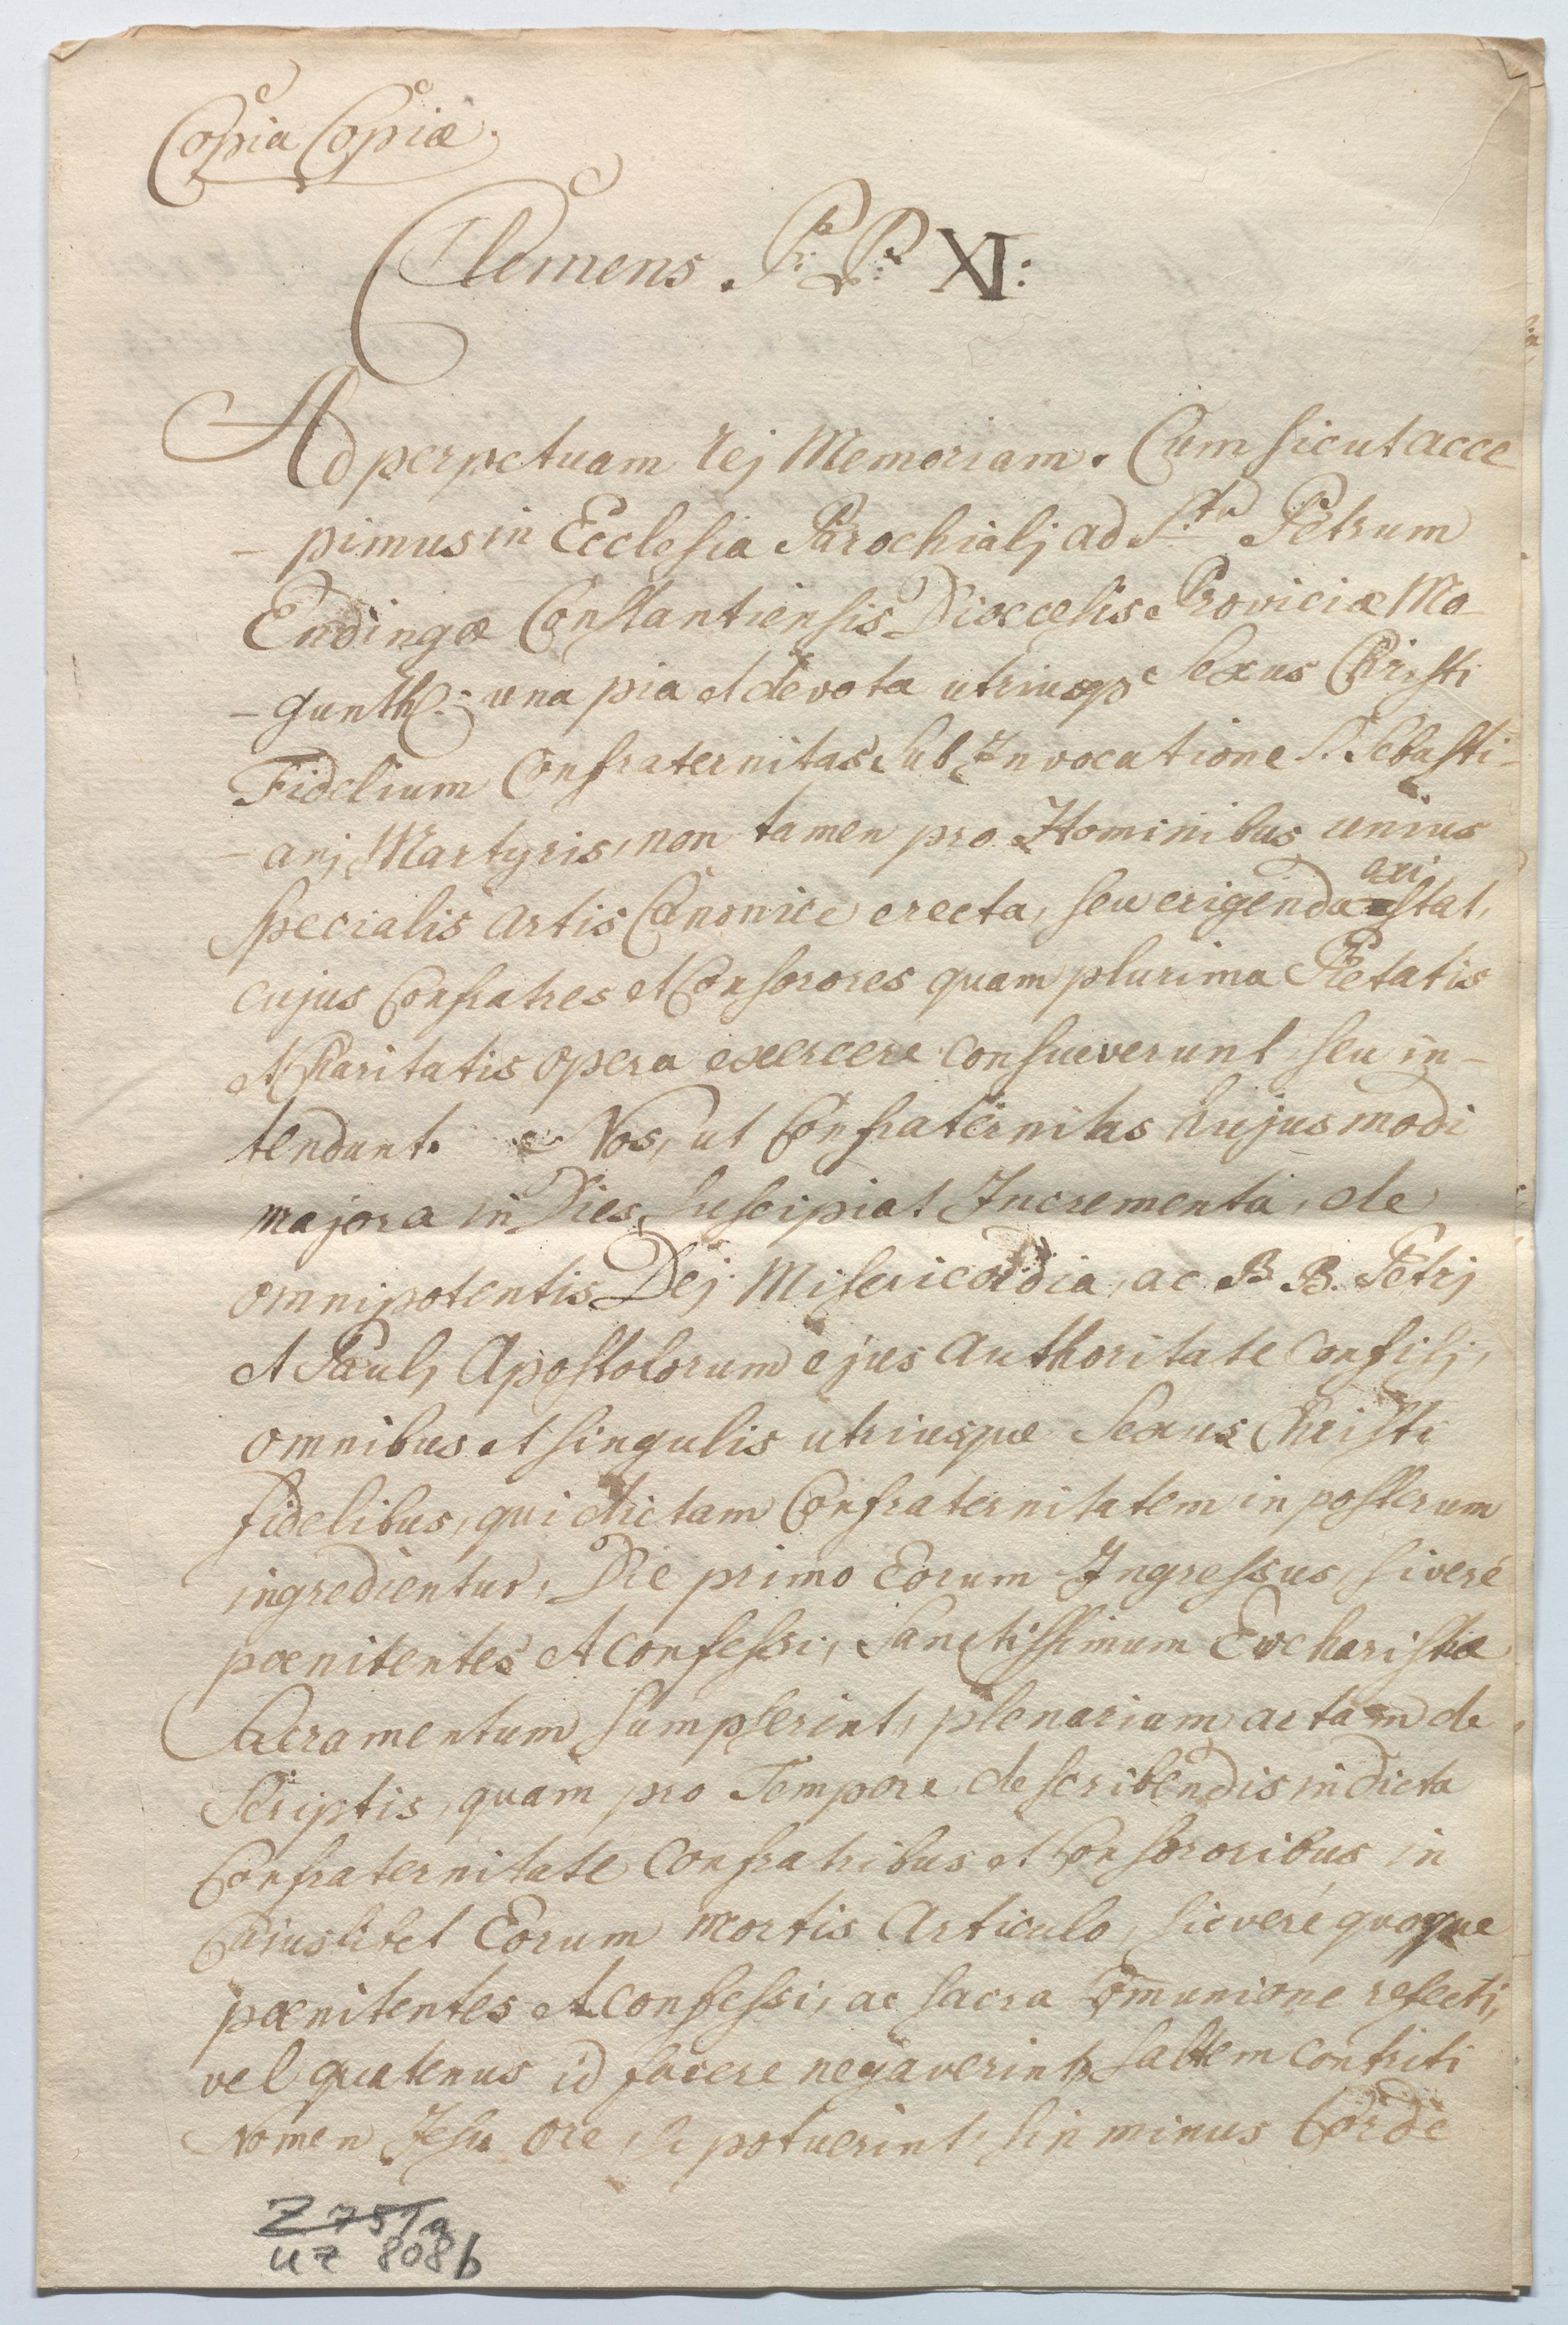 Copia Copiæ.
Clemens. P: P: XI:
Ad perpetuam rej Memoriam. Cum sicut acce
- pimus in Ecclesia Parochialj ad Stu Petrum
Endingæ Constantiensis Dioecesis Proviciæ Mo
- gunth: una pia et devota utriusqe sexus Christi
Fidelium Confraternitas sub Invocatione S. Sebasti-
- anj Martyris, non tamen pro Hominibus unius
specialis artis Canonice erecta, seu erigenda exi stat,
cujus Confratres et Consorores quam plurima Pietatis
et Charitatis opera exercere consueverunt seu in-
tendunt. Nos, ut Confraternitas hujusmodi
majora in Dies suscipiat Incrementa, de
omnipotentis Dej Misericordia, ac B. B. Petrj
et Paulj Apostolorum ejus Authoritate confisj,
omnibus et singulis utriusqe sexus Christi
fidelibus, qui dictam Confraternitatem in posterum
ingredientur, Die primo Eorum Ingressus, si veré
poenitentes et confessi, Sanctissimum Eucharistiæ
Sacramentum sumpserint, plenariam ac tam de
scriptis, quam pro Tempore describendis in dicta
Confraternitate confratribus et Consororibus in
Cujuslibet Eorum mortis Articulo, si veré quoque
poenitentes et confessi, ac sacra Comunione refecti,
vel quatenus id facere negaverint, saltem contriti
Nomen Jesu ore, si potuerint, sin minus Corde
Z 751a
U Z 808b